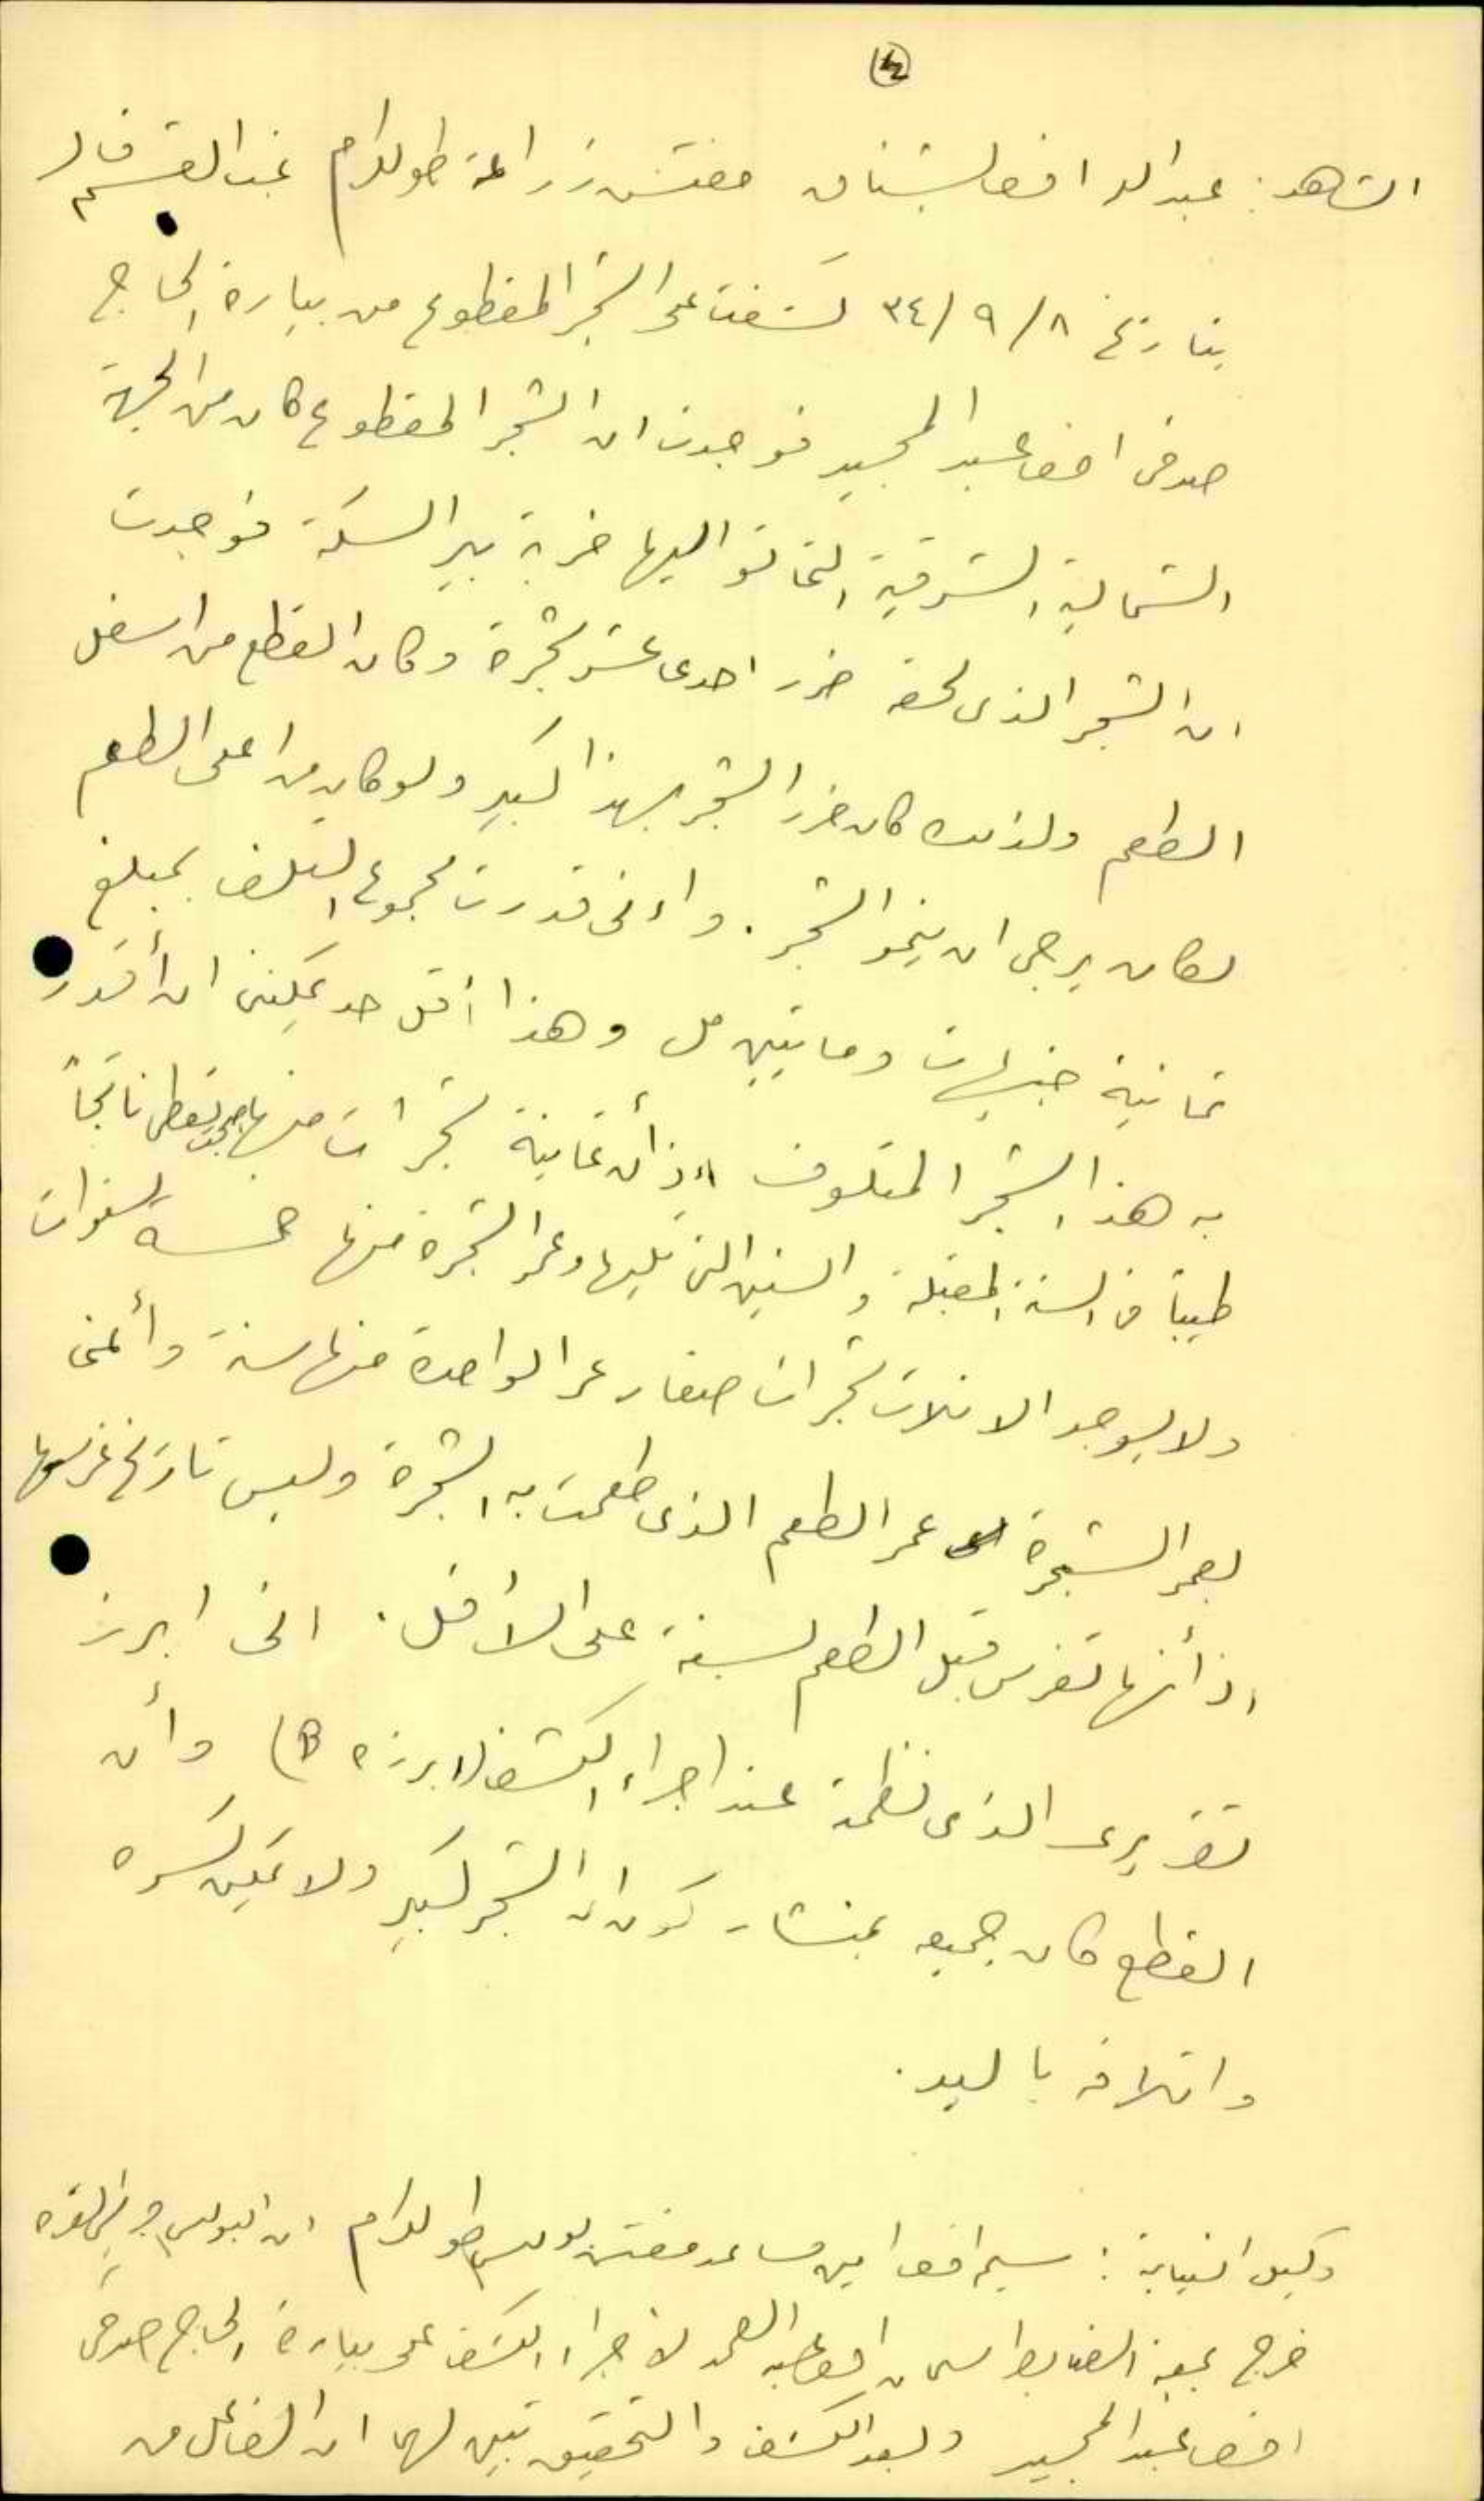 ٤
الشاهد: عبدالله افندي مفتش زراعة طولكرم غب القسم قال
بتاريخ ٨/٩/٣٤ كشفت على الشجر المقطوع من بيارة الحاج
صدقي افندي عبد المجيد فوجدت ان الشجر المقطوع كان من الجهة
الشمالية الشرقية اليها خربة بير السكة فوجدت
ان الشجر الذي لحقه ضرر احدى عشر شجرة وكان القطع من اسفل
الطعم ولذلك كان ضرر الشجر بهذا كبير ولو كان من اعلى الطعم
لكان يرجى ان ينمو الشجر. واني قدرت مجموع التلف بمبلغ
ثمانية جنيهات ومايتين مل وهذا أقل حد يمكنني ان أقدر
به هذا الشجر المتلوف اذ أن ثمانية شجرات منها تعطي ناتجاً
طيباً في السنة المقبلة والسنين التي تليها وعمر الشجرة منها خمسة سنوات
ولا يوجد الا ثلاث شجرات صغار عمر الواحدة منها سنة وأعني
بعمر الشجرة عمر الطعم الذي طعمت به الشجرة وليس تاريخ غرسها
اذ أنها تغرس قبل الطعم بسنة على الأقل. اني ابرز
تقريري الذي نظمته عند اجراء الكشف (ابرزه B) وأن
القطع كان جميعه بمنشار كون ان الشجر كبير ولا يمكن كسره
واتلافه باليد.
وكيل النيابة: سليم افندي امين مساعد مفتش بوليس طولكرم ان البوليس
خرج بمعية الضابط افندي عبد الصمد لاجراء الكشف على بيارة الحاج صدقي
افندي عبد المجيد وبعد الكشف والتحقيق تبين لهما ان الفاعل من